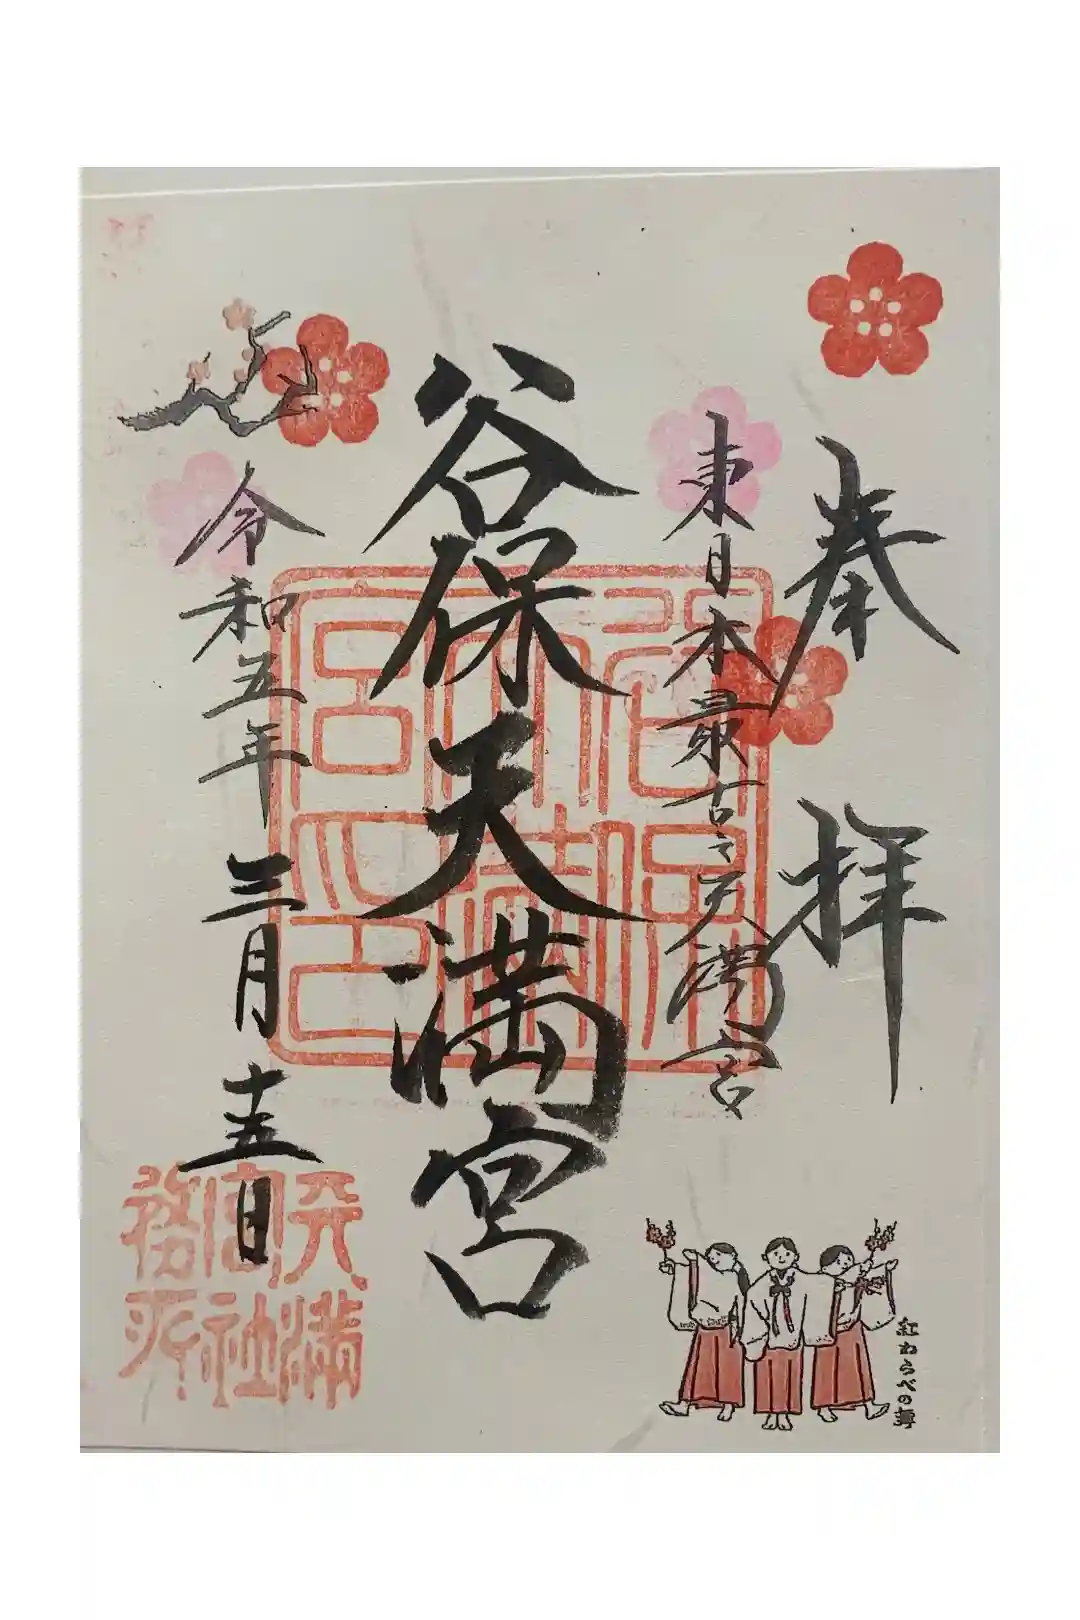 奉拝
東日本最古之天満宮
谷保天満宮
令和五年三月十五日
天満宮社務所
紅わらべの舞